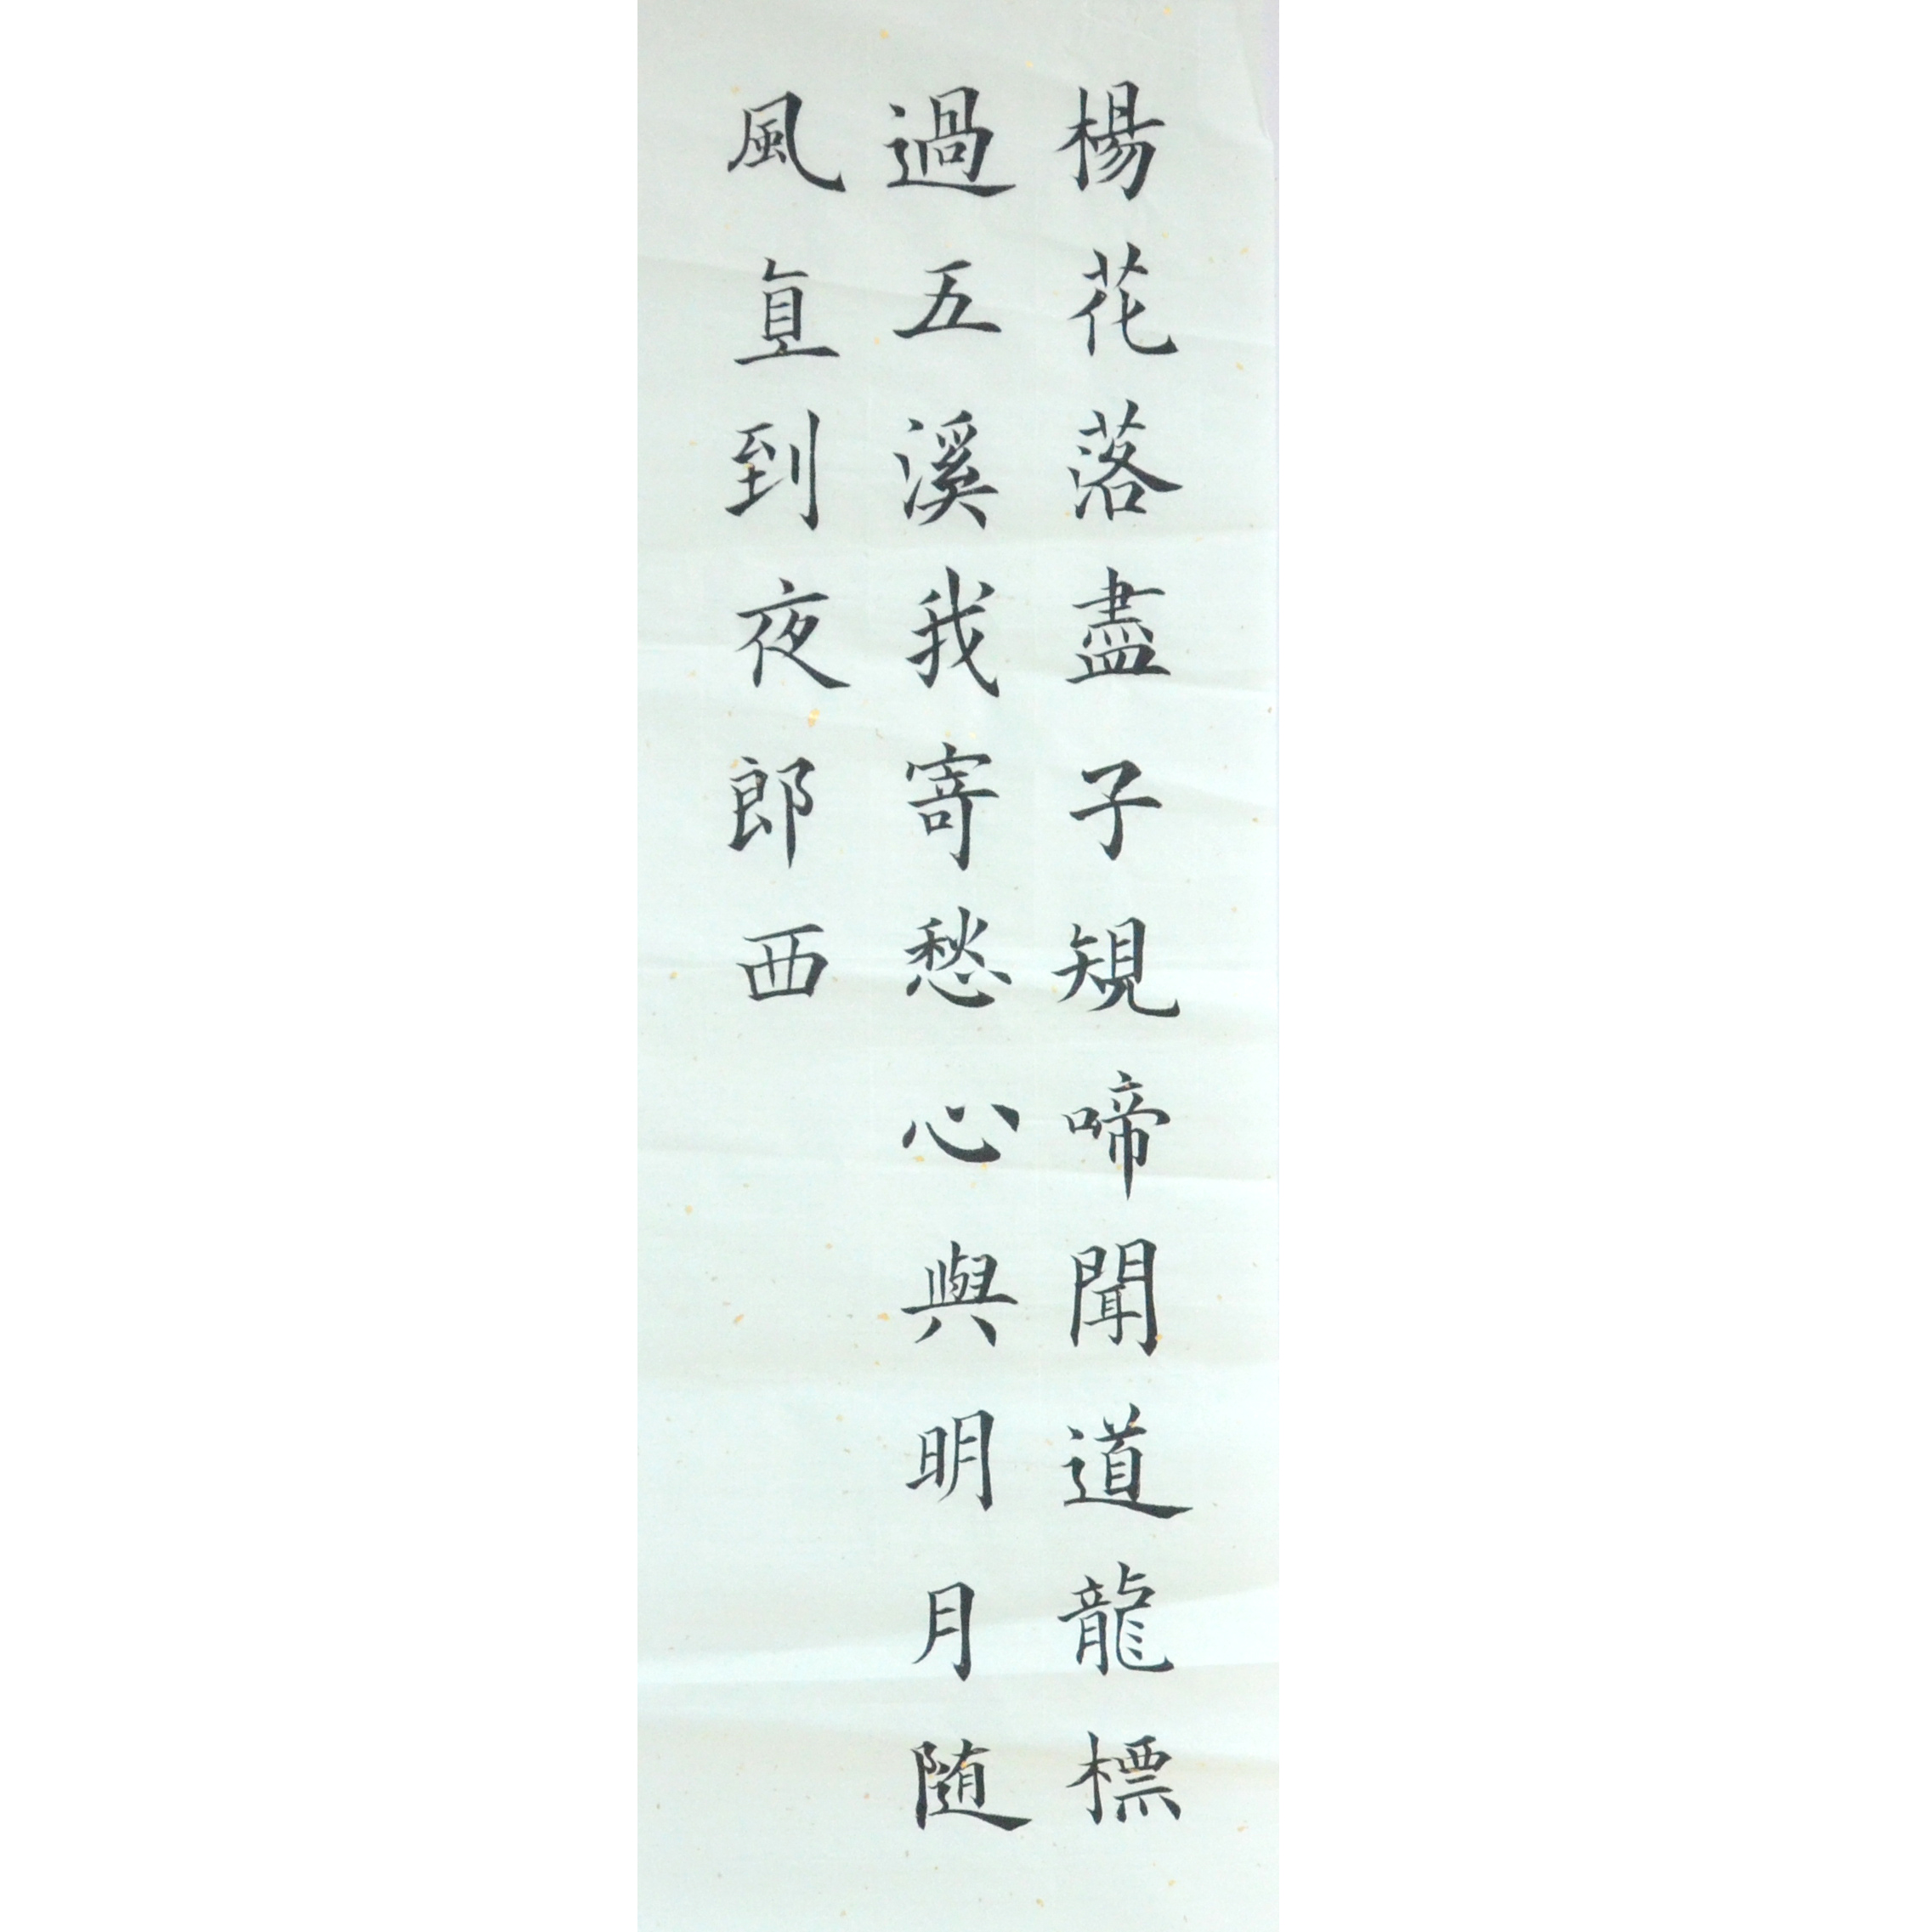 楊花落盡子規啼聞道龍標
過五溪我寄愁心與明月随
風直到夜郎西